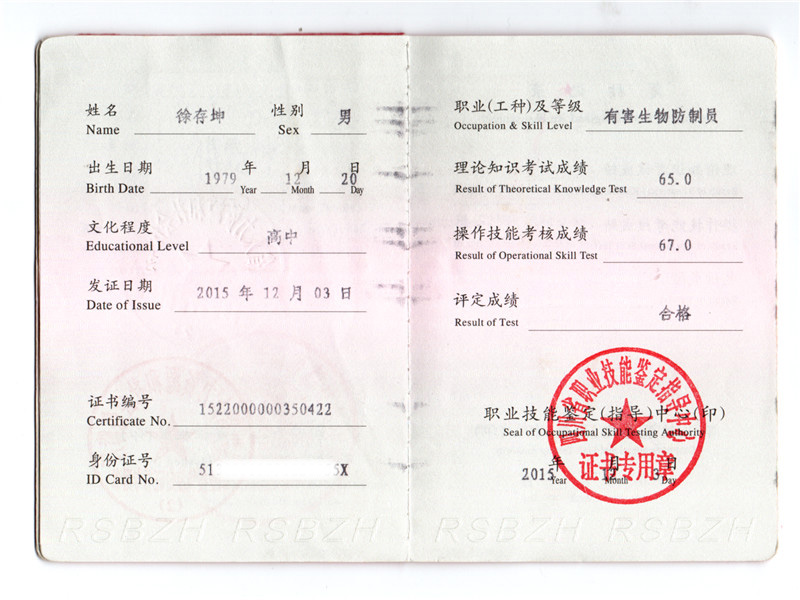 姓名 徐存坤 性别 男
Name Sex
出生日期 1979 年 12 月 20 日
Birth Date Year Month Day
文化程度 高中
Educational Level
发证日期 2015 年 12 月 03 日
Date of Issue
证书编号 1522000000350422
Certificate No.
身份证号 51 5X
ID Card No.
RSBZH RSBZH
职业(工种)及等级 有害生物防制员
Occupation & Skill Level
理论知识考试成绩 65.0
Result of Theoretical Knowledge Test
操作技能考核成绩 67.0
Result of Operational Skill Test
评定成绩 合格
Result of Test
四川省职业技能鉴定指导中心
职业技能鉴定(指导)中心(印)
Seal of Occupational Skill Testing Authority
证书专用章
2015 年 月 日
Year Month Day
RSBZH RSBZH